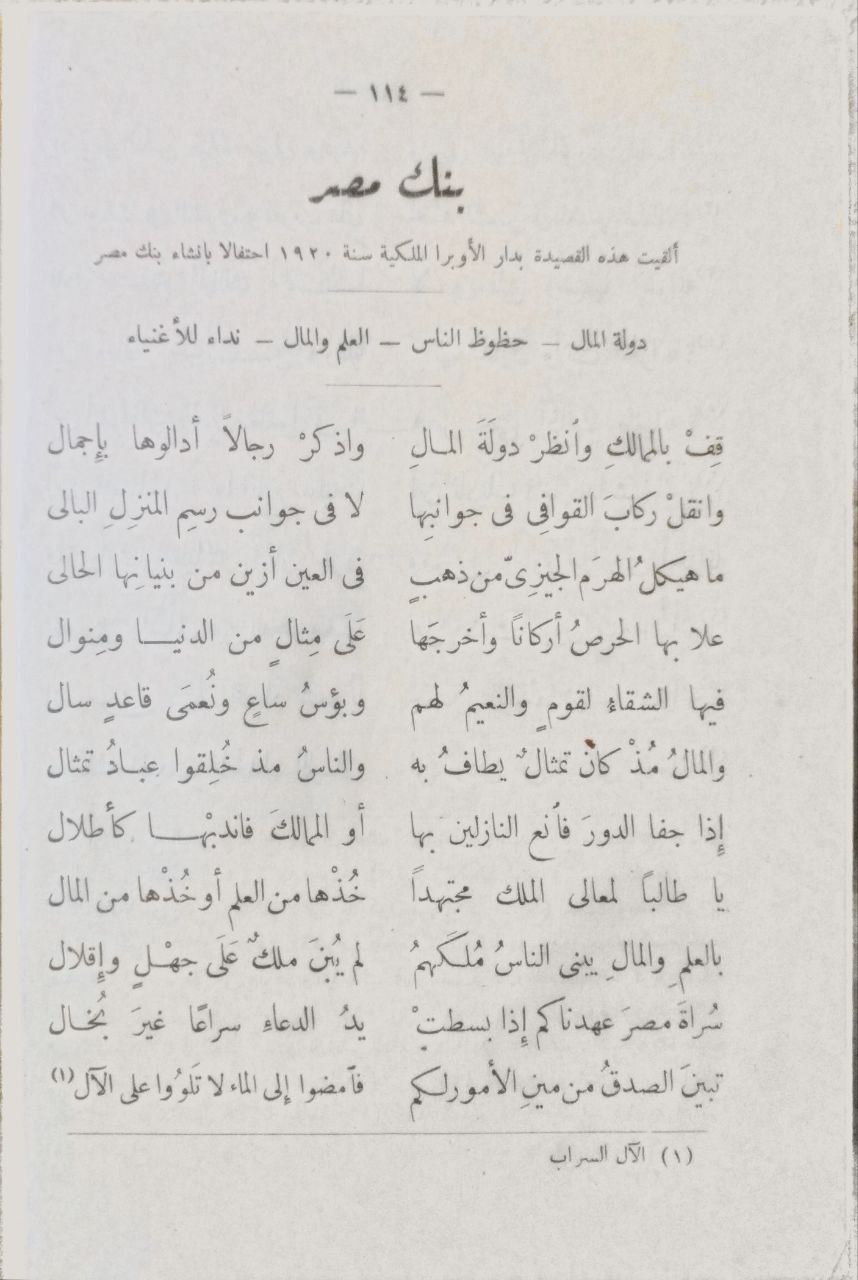 — ١١٤ —
بنك مصر
ألقيت هذه القصيدة بدار الأوبرا الملكية سنة ١٩٢٠ احتفالا بانشاء بنك مصر
دولة المال — حظوظ الناس — العلم والمال — نداء للأغنياء
قِفْ بالممالكِ وٱنظرْ دولَةَ المالِ واذكرْ رجالاً أدالوها بإِجمال
وانقلْ ركابَ القوافِى فى جوانبِها لا فى جوانب رسمِ المنزلِ البالى
ما هيكلُ الهرَم الجيزِىّ من ذهبٍ فى العين أزين من بنيانِها الحالى
علا بها الحرصُ أركاناً وأخرجَها عَلَى مِثالٍ من الدنيا ومِنوال
فيها الشقاءُ لقومٍ والنعيمُ لهم وبؤسُ ساعٍ ونُعمَى قاعدٍ سال
والمالُ مُذْ كانَ تمثالٌ يطافُ به والناسُ مذ خُلِقوا عبادُ تمثال
إِذا جفا الدورَ فٱنع النازلين بها أو الممالكَ فاندبْها كأطلال
يا طالباً لمعالى الملك مجتهداً خُذْها من العلم أو خُذْها من المال
بالعلمِ والمالِ يبنى الناسُ مُلكَهمُ لم يُبْنَ ملكٌ عَلَى جهْلٍ وإِقلال
سُراةَ مصرَ عهدناكم إِذا بسطتْ يدُ الدعاءِ سراعًا غيرَ بُخال
تبينَ الصدقُ من مينِ الأمور لكم فٱمضوا إلى الماء لا تَلوُوا على الآل (١)
(١) الآل السراب